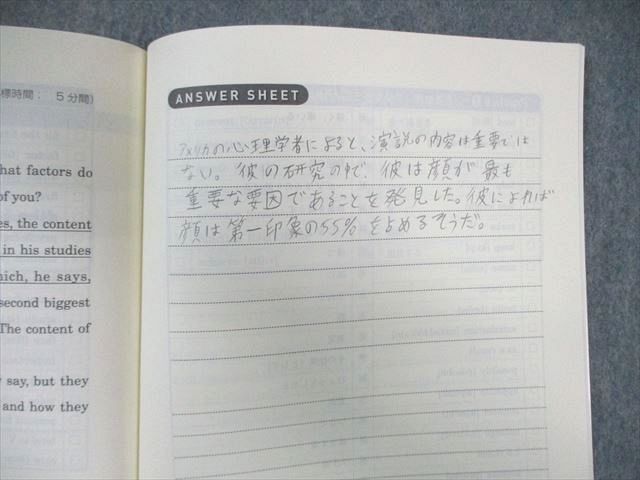 標時間： 5分間)
hat factors do
of you?
es, the content
in his studies
hich, he says,
second biggest
The content of
say, but they
and how they
ANSWER SHEET
アメリカの心理学者によると、演説の内容は重要では
ない。彼の研究の中で、彼は顔が最も
重要な要因であることを発見した。彼によれば
顔は第一印象の55%を占めるそうだ。